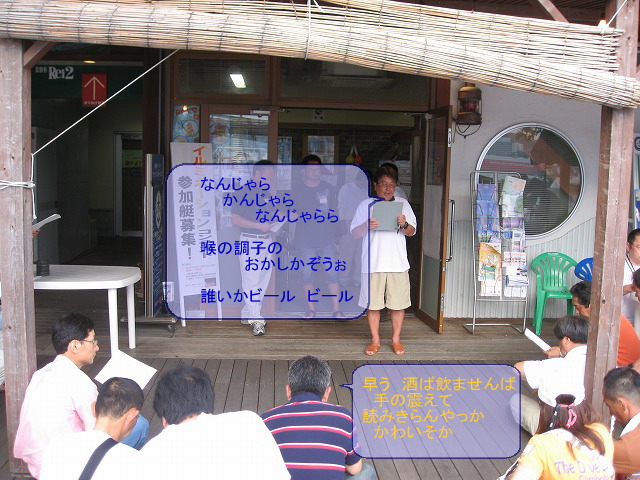 Rei2
参加艇募集!
なんじゃら
かんじゃら
なんじゃらら
喉の調子の
おかしかぞうぉ
誰いかビール ビール
早う 酒ば飲ませんば
手の震えて
読みきらんやっか
かわいそか
The Dive